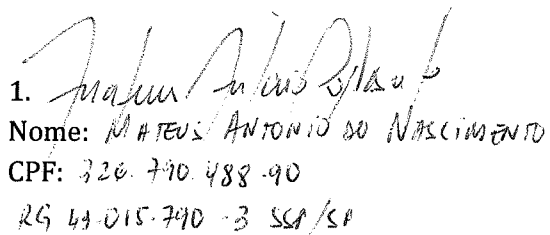 1.
Nome: MATEUS ANTONIO DO NASCIMENTO
CPF: 326.790.488-90
RG 49.015.790-3 SSP/SP